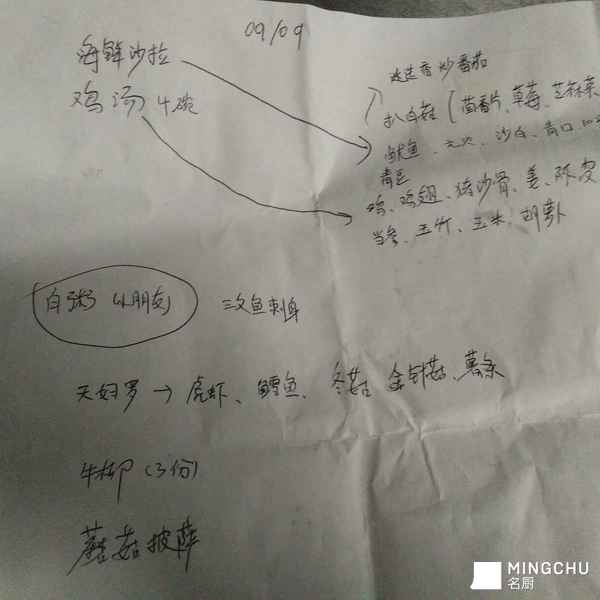 09/09
海鲜沙拉
鸡汤 4碗
迷迭香炒番茄
扒白菇 (茴香片、草莓、芝麻菜
鱿鱼、元贝、沙白、青口
青豆
鸡、鸡翅、猪沙骨、姜、陈皮
当参、玉竹、玉米、胡萝卜
白粥 (小朋友)
三文鱼刺身
天妇罗 → 虎虾、鳕鱼、冬菇 金针菇、薯条
牛柳 (3份)
蘑菇披萨
MINGCHU
名厨